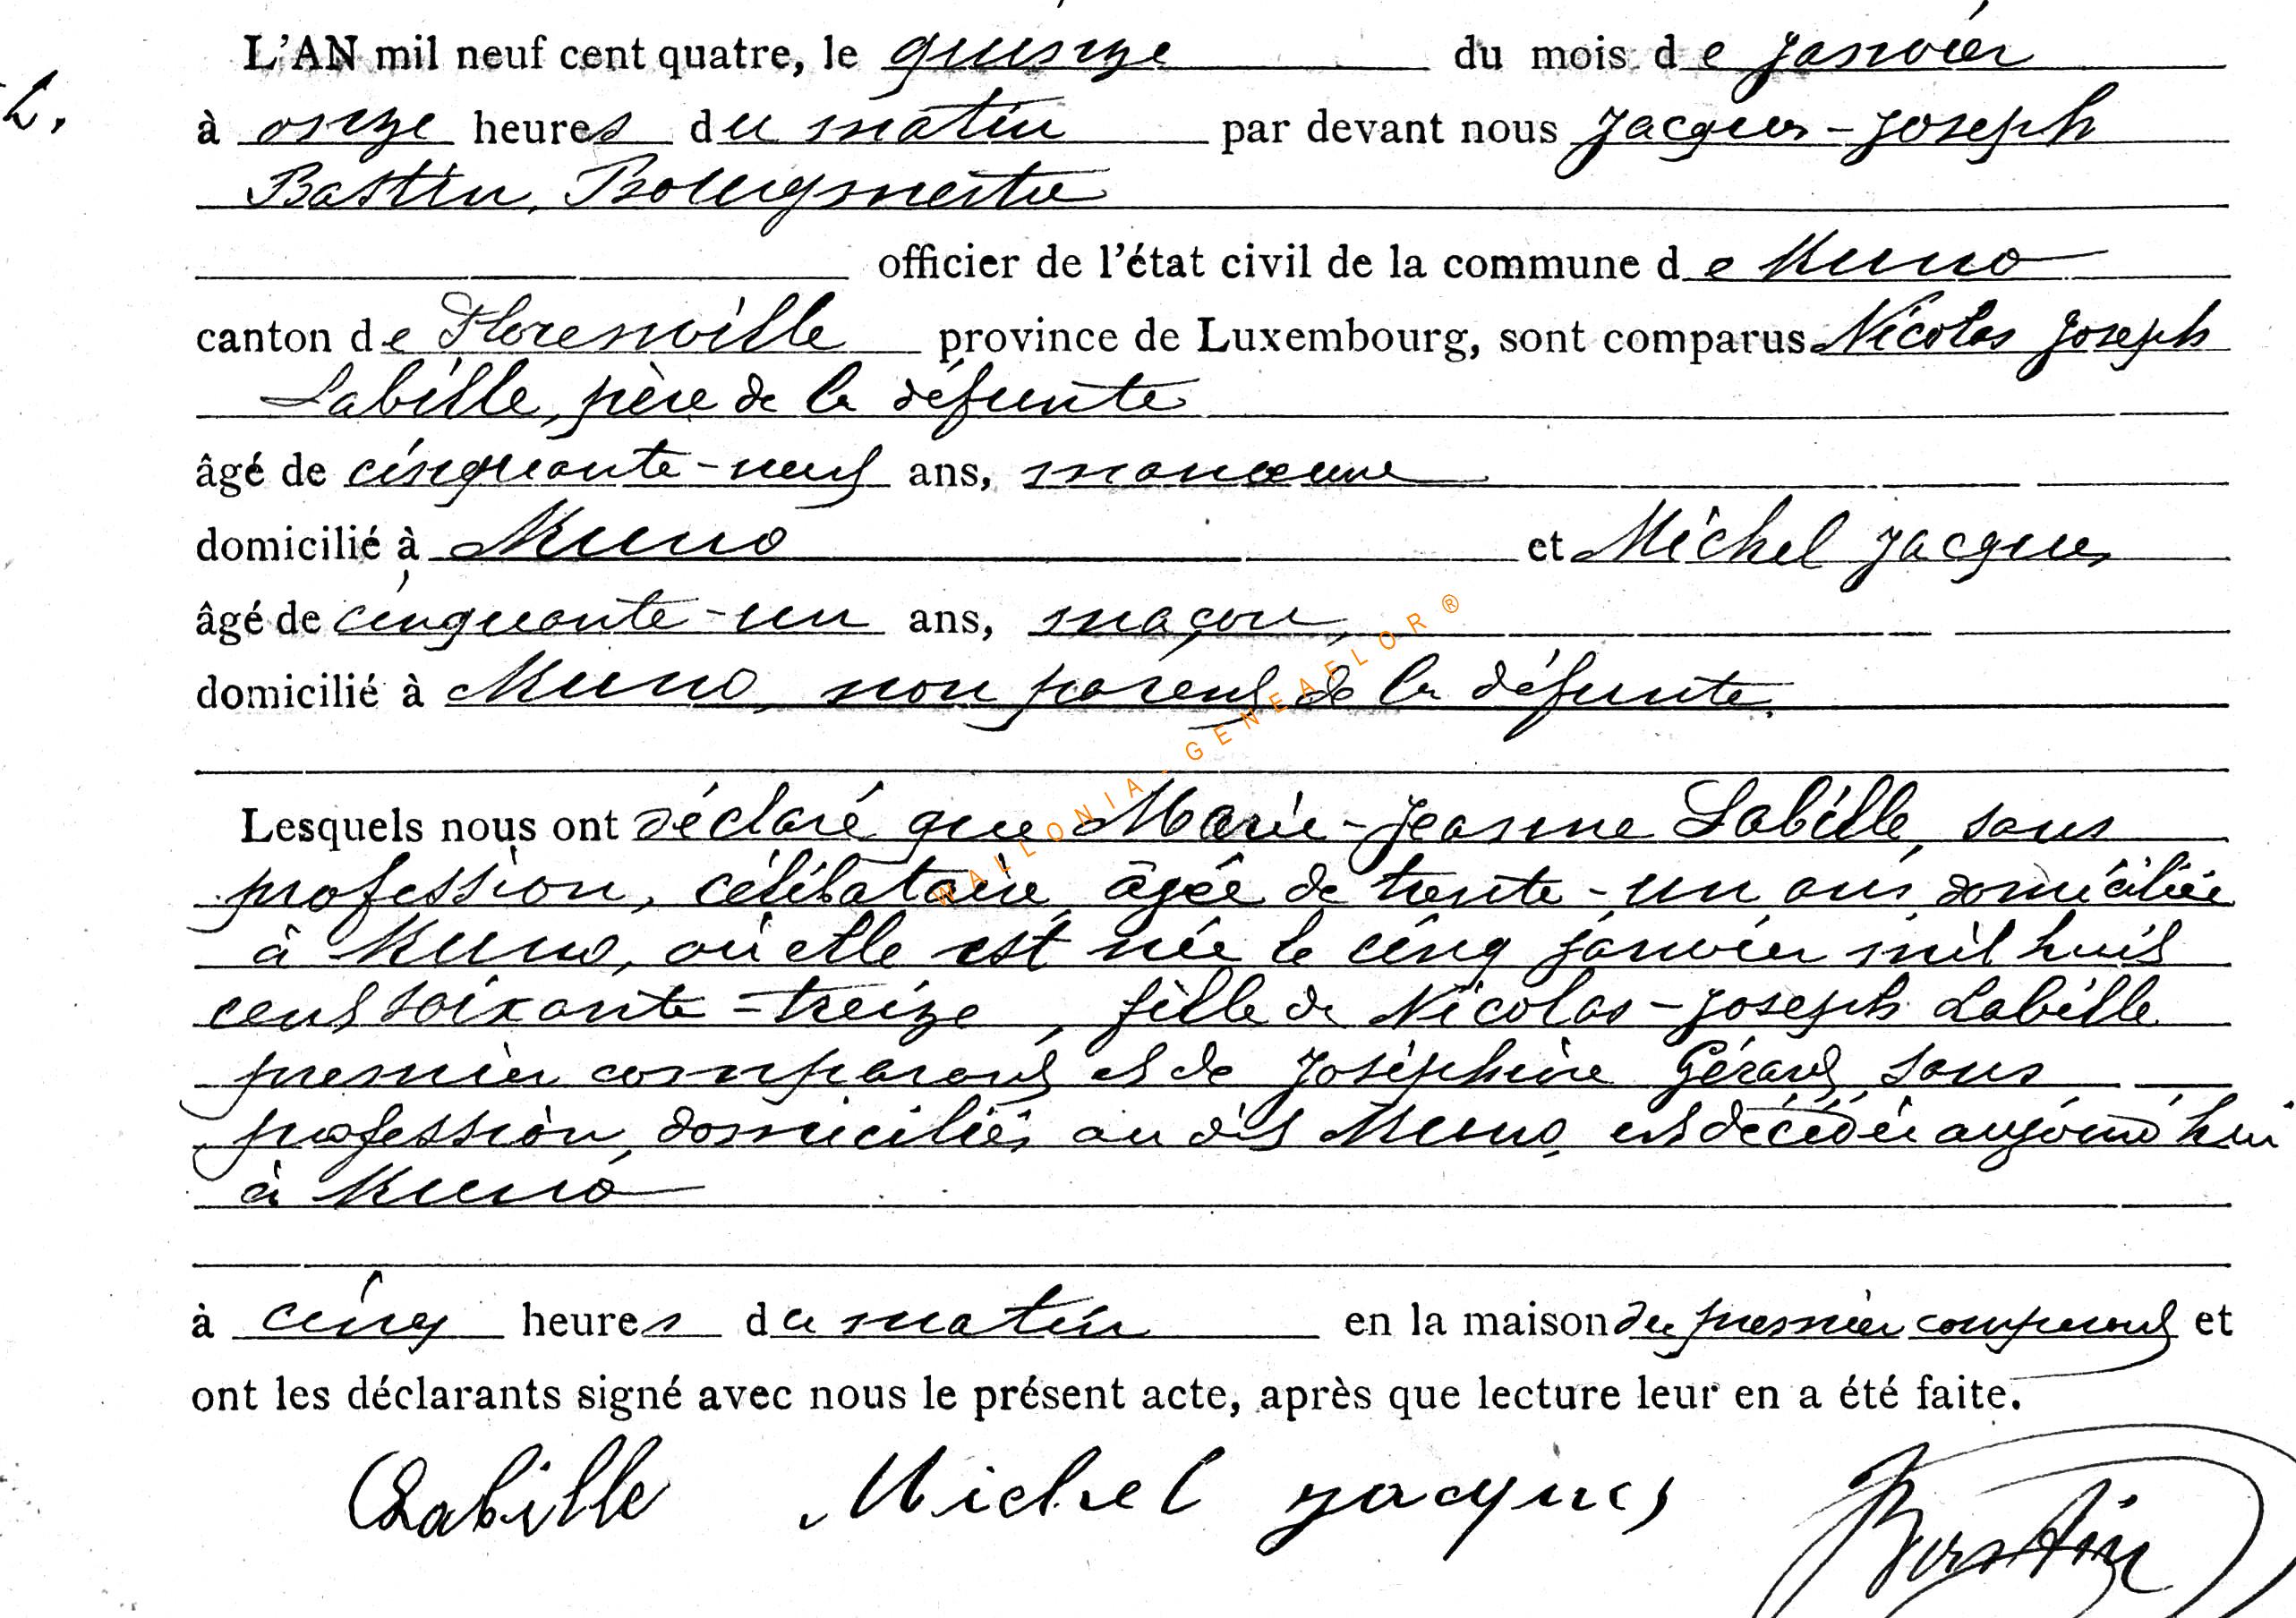 L'AN mil neuf cent quatre, le quinze du mois de janvier
L.
à onze heures du matin par devant nous Jacques-Joseph
Bastin, Bourgmestre
officier de l'état civil de la commune de Muno
canton de Florenville province de Luxembourg, sont comparus Nicolas Joseph
Labille, père de la défunte
âgé de cinquante-neuf ans, manœuvre
domicilié à Muno et Michel Jacques
âgé de cinquante-un ans, maçon,
domicilié à Muno, non parent de la défunte.
WALLONIA - GENEAFLOR ®
Lesquels nous ont déclaré que Marie-Jeanne Labille, sans
profession, célibataire, âgée de trente-un ans domiciliée
à Muno, où elle est née le cinq janvier mil huit
cent soixante-treize, fille de Nicolas-Joseph Labille
premier comparant et de Joséphine Gérard, sans
profession, domiciliés au dit Muno, est décédée aujourd'hui
à Muno
à cinq heures du matin en la maison du premier comparant et
ont les déclarants signé avec nous le présent acte, après que lecture leur en a été faite.
Labille Michel Jacques Bastin